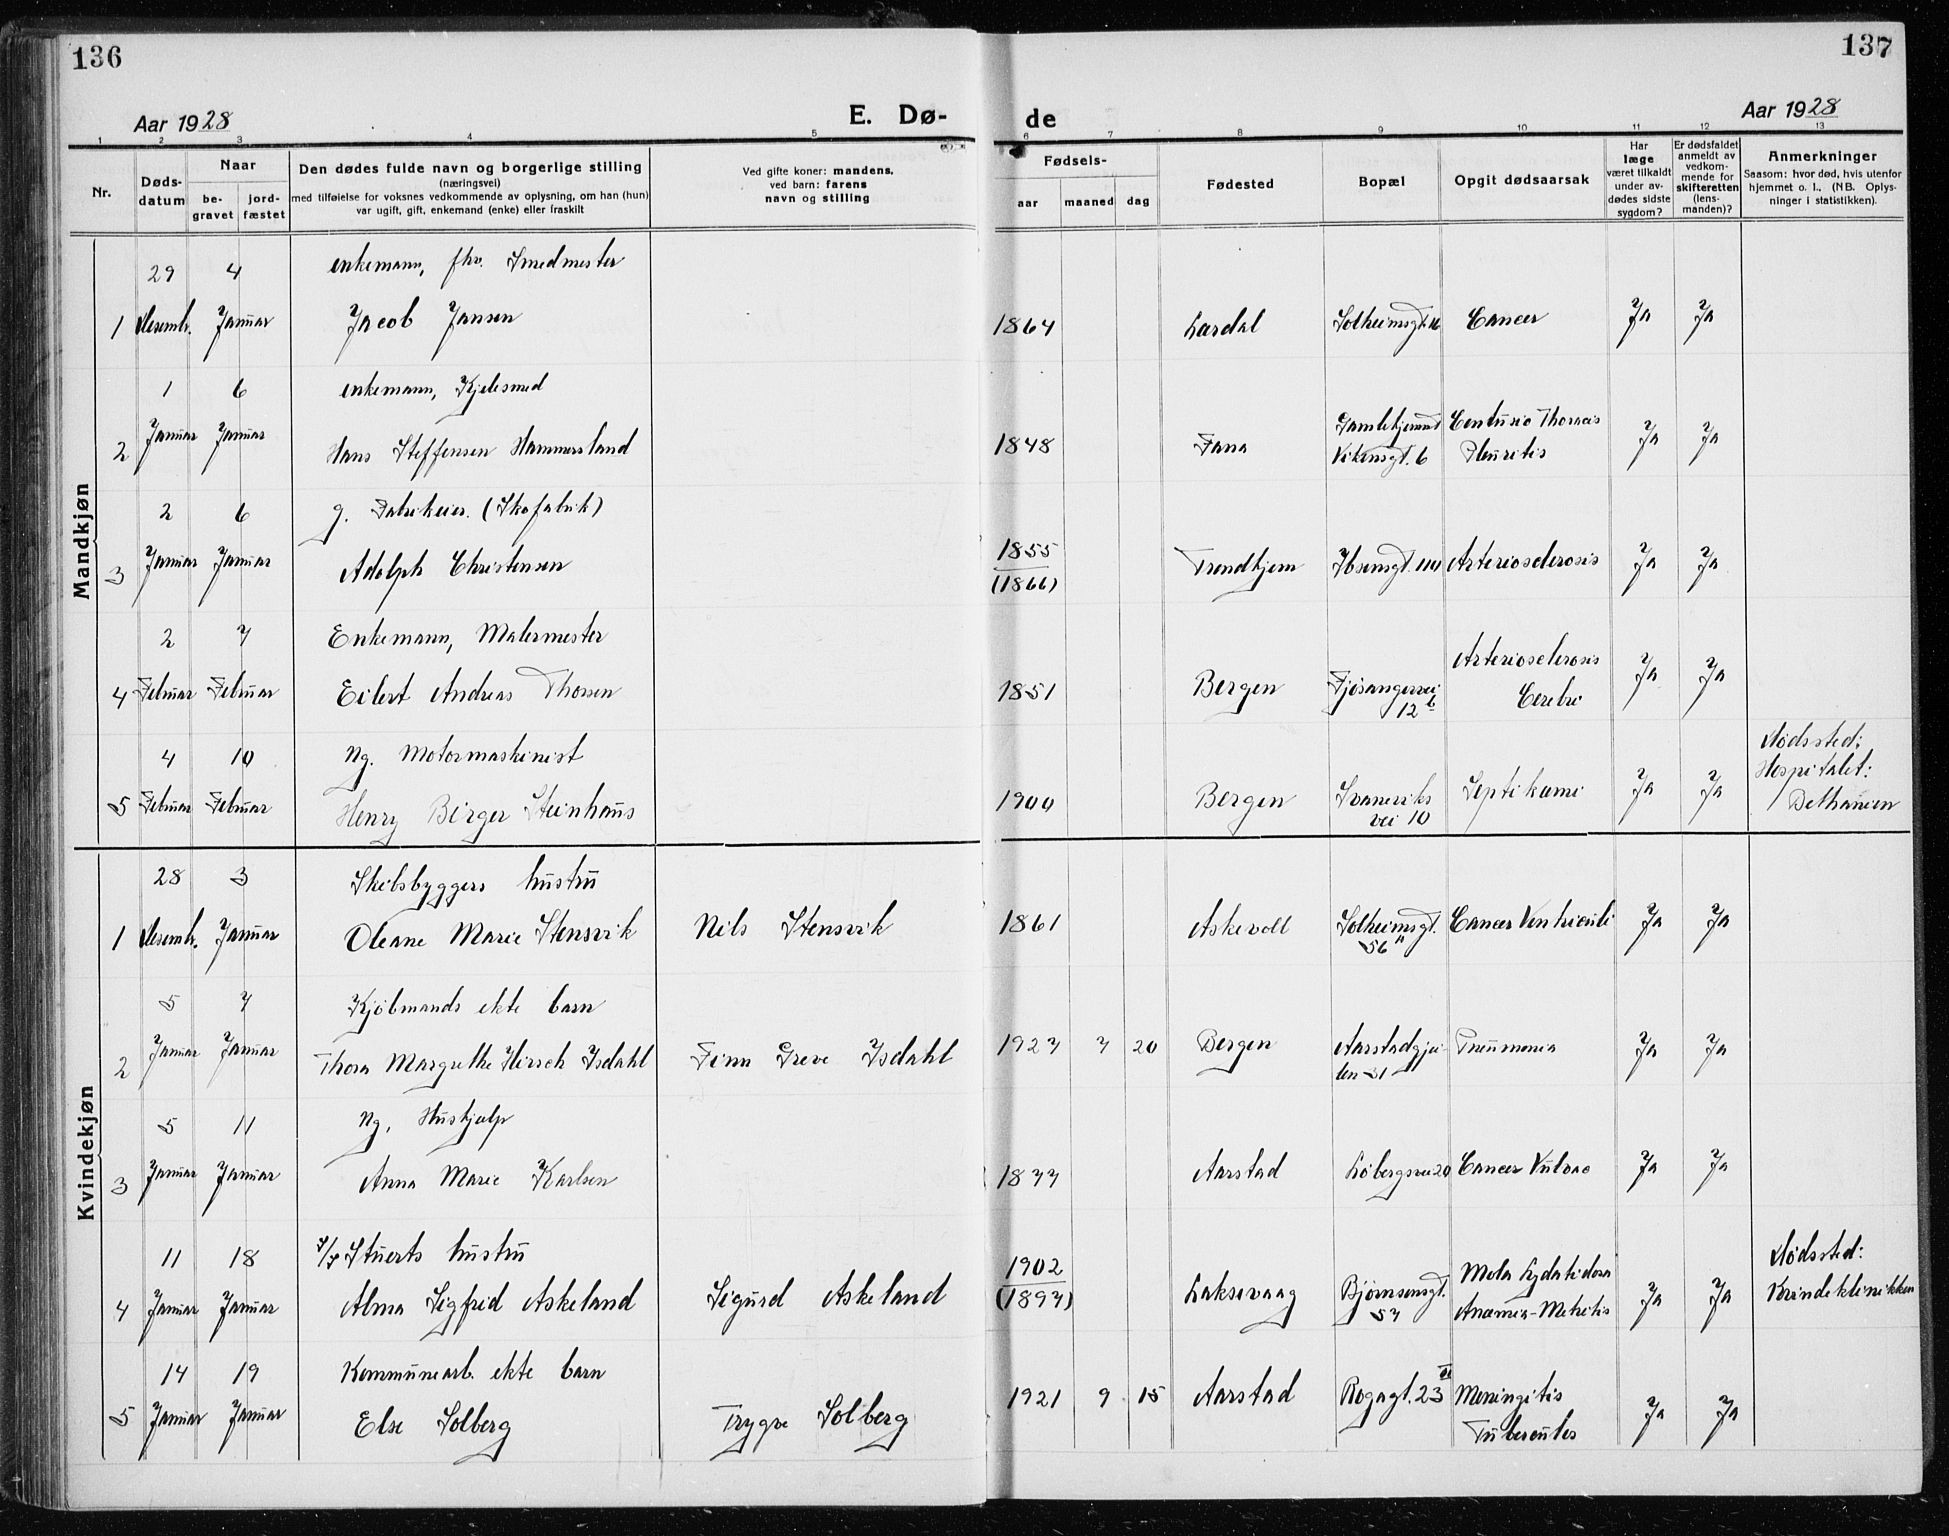 136
137
Aar 1928
E. Dø-
de
Aar 1928
1 2 3 4 5 6 7 8 9 10 11 12 13
Nr.
Døds-
datum
Naar
be-
gravet
jord-
fæstet
Den dødes fulde navn og borgerlige stilling
(næringsvei)
med tilføielse for voksnes vedkommende av oplysning, om han (hun)
var ugift, gift, enkemand (enke) eller fraskilt
Ved gifte koner: mandens,
ved barn: farens
navn og stilling
Fødsels-
aar maaned dag
Fødested
Bopæl
Opgit dødsaarsak
Har
læge
været tilkaldt
under av-
dødes sidste
sygdom?
Er dødsfaldet
anmeldt av
vedkom-
mende for
skifteretten
(lens-
manden)?
Anmerkninger
Saasom: hvor død, hvis utenfor
hjemmet o. l., (NB. Oplys-
ninger i statistikken).
Mandkjøn
29 4 enkemann, fhv. Smedmester
1 Desembr. Januar Jacob Jansen 1864 Lardal Solheimsgt. 16 Cancer Ja Ja
1 6 enkemann, Kjelesmed
2 Januar Januar Hans Steffensen Hammersland 1848 Fana Gamlehjemmet
Vikensgt. 6 Contusio Thoracis
Pleuritis Ja Ja
2 6 g. Fabrikeier. (Skofabrik)
3 Januar Januar Adolph Christensen 1855
(1866) Trondhjem Ibsensgt. 114 Arteriosclerosis Ja Ja
2 7 Enkemann, Malermester
4 Februar Februar Eilert Andreas Thorsen 1851 Bergen Fjøsangervei
12 b Arteriosclerosis
Cerebri Ja Ja
4 10 Ug. Motormaskinist
5 Februar Februar Henry Birger Steinhaus 1900 Bergen Svaneviks
vei 10 Septikæmi Ja Ja Dødssted:
Hospitalet:
Bethanien
Kvindekjøn
28 3 Skibsbyggers hustru
1 Desembr. Januar Oleane Marie Stensvik Nils Stensvik 1861 Askevoll Solheimsgt.
56 Cancer Ventriculi Ja Ja
5 7 Kjøbmands ekte barn
2 Januar Januar Thora Margrethe Hirsch Isdahl Finn Greve Isdahl 1927 7 20 Bergen Aarstadgjei-
len 31 Pneumonia Ja Ja
5 11 Ug. Hushjælp
3 Januar Januar Anna Marie Karlsen 1877 Aarstad Løbergsvei 20 Cancer Vulvae Ja Ja
11 18 Stuerts hustru
4 Januar Januar Alma Sigfrid Askeland Sigurd Askeland 1902
(1897) Laksevaag Bjørnsensgt.
57 Mola hydatidosa
Anæmia-Metritis Ja Ja Dødssted:
Kvindeklinikken
14 19 Kommunearb. ekte barn
5 Januar Januar Else Solberg Trygve Solberg 1921 9 15 Aarstad Rogagt. 23 Meningitis
Tuberculos Ja Ja